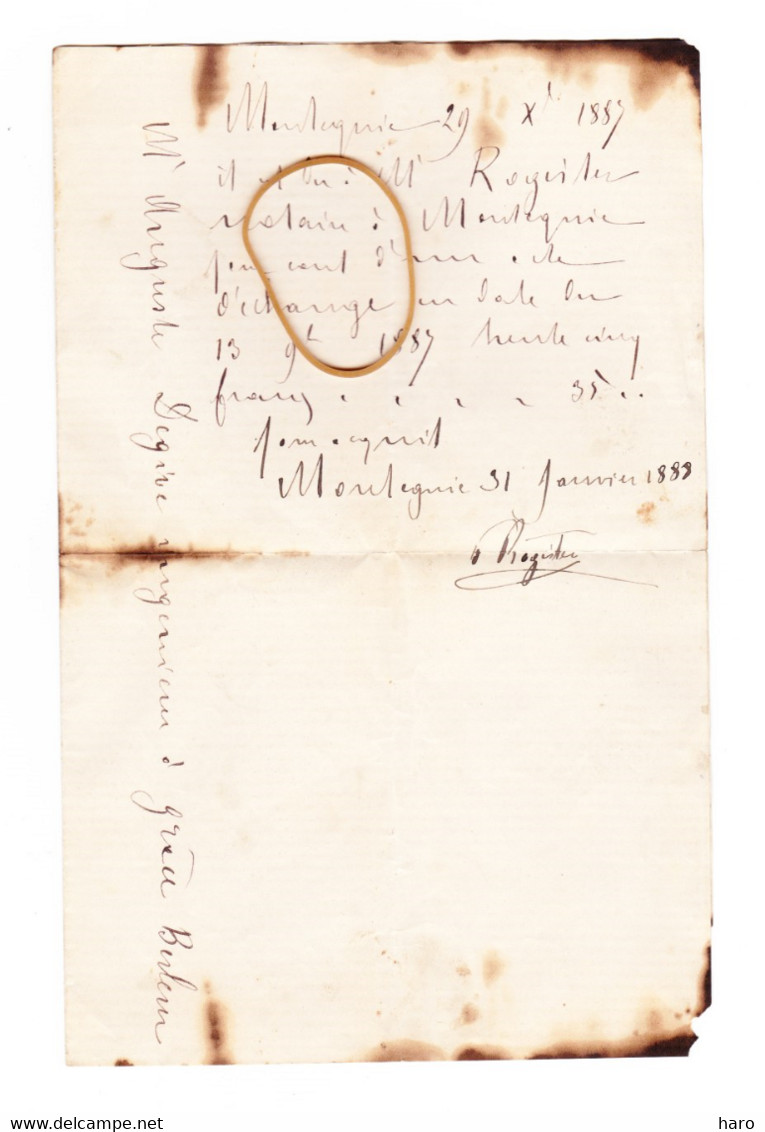 Montegnée 29 Xbre 1887
il est dû à Mr Rogister
notaire à Montegnée
pour cout d'un acte
d'échange en date du
13 9bre 1887 trente cinq
francs . . . . 35 ..
pour acquit
Montegnée 31 Janvier 1888
Rogister
Mr Auguste Degive ingenieur à grâce Berleur
delcampe.net
haro